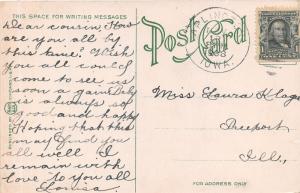 THIS SPACE FOR WRITING MESSAGES
Dear cousin: How
are you all by
this time? Wish
you all could
come to see us
soon a game
is always so
good and happy
Hoping that this
may find you
all well. I
remain with
love to you all
Louisa.
Post Card
IOWA.
Miss Laura
Freeport
Ill,
FOR ADDRESS ONLY